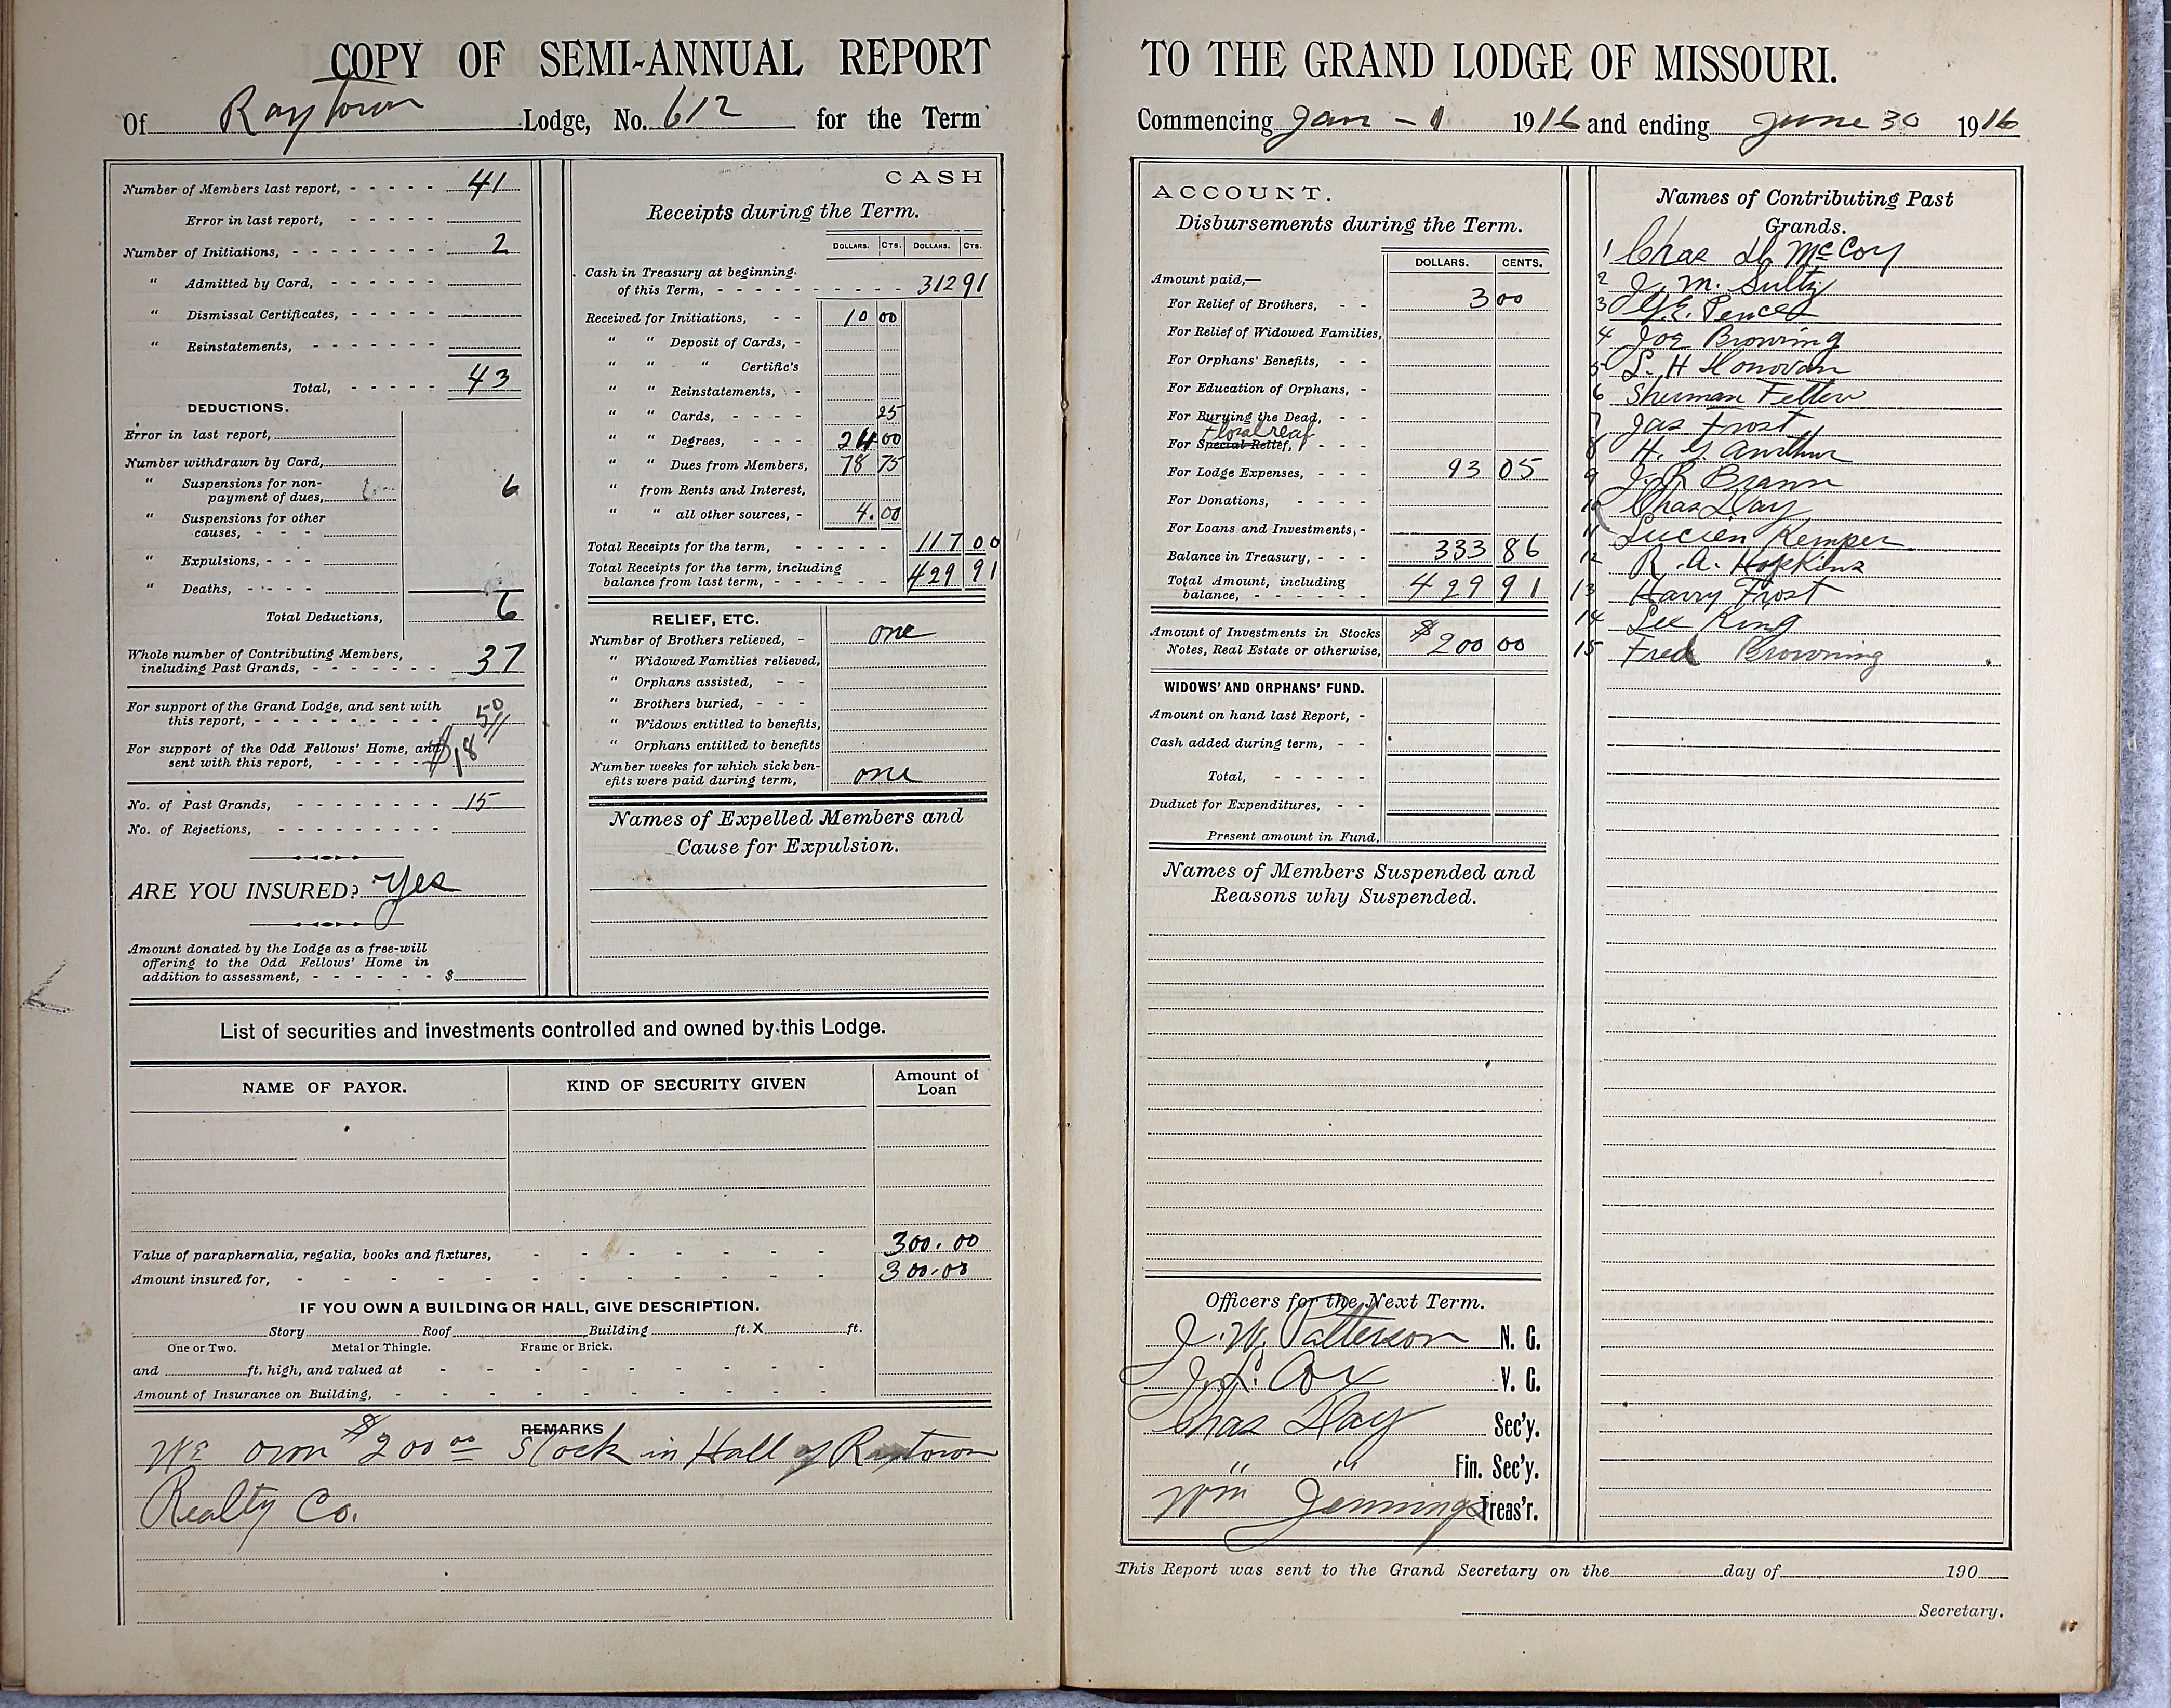 COPY OF SEMI-ANNUAL REPORT
Of Raytown Lodge, No. 612 for the Term
Number of Members last report, - - - - - 41
Error in last report, - - - - -
Number of Initiations, - - - - - - - 2
" Admitted by Card, - - - - -
" Dismissal Certificates, - - - - -
" Reinstatements, - - - - - - -
Total, - - - - - 43
DEDUCTIONS.
Error in last report,
Number withdrawn by Card,
" Suspensions for non-
payment of dues, 6
" Suspensions for other
causes, - - -
" Expulsions, - - -
" Deaths, - - - -
Total Deductions, 6
Whole number of Contributing Members,
including Past Grands, - - - - - - - 37
For support of the Grand Lodge, and sent with
this report, - - - - - - - - - -
For support of the Odd Fellows' Home, and
sent with this report, - - - - - $18
No. of Past Grands, - - - - - - - - 15
No. of Rejections, - - - - - - - - -
ARE YOU INSURED? Yes
Amount donated by the Lodge as a free-will
offering to the Odd Fellows' Home in
addition to assessment, - - - - - - $
CASH
Receipts during the Term.
DOLLARS. CTS. DOLLARS. CTS.
Cash in Treasury at beginning
of this Term, - - - - - - - - - - 312 91
Received for Initiations, - - 10 00
" " Deposit of Cards, -
" " " Certific's
" " Reinstatements, -
" " Cards, - - - - 25
" " Degrees, - - - 24 00
" " Dues from Members, 78 75
" from Rents and Interest,
" " all other sources, - 4.00
Total Receipts for the term, - - - - - 117 00
Total Receipts for the term, including
balance from last term, - - - - - - - 429 91
RELIEF, ETC.
Number of Brothers relieved, - one
" Widowed Families relieved,
" Orphans assisted, - -
" Brothers buried, - - -
" Widows entitled to benefits,
" Orphans entitled to benefits
Number weeks for which sick ben-
efits were paid during term, one
Names of Expelled Members and
Cause for Expulsion.
List of securities and investments controlled and owned by this Lodge.
NAME OF PAYOR. KIND OF SECURITY GIVEN Amount of
Loan
Value of paraphernalia, regalia, books and fixtures, - - - - - - - 300.00
Amount insured for, - - - - - - - - - - - - 300.00
IF YOU OWN A BUILDING OR HALL, GIVE DESCRIPTION.
Story Roof Building ft. X ft.
One or Two. Metal or Thingle. Frame or Brick.
and ft. high, and valued at - - - - - - - - -
Amount of Insurance on Building, - - - - - - - - - -
REMARKS
We own $200 00 Stock in Hall of Raytown
Realty Co.
TO THE GRAND LODGE OF MISSOURI.
Commencing Jan - 1 1916 and ending June 30 1916
ACCOUNT.
Disbursements during the Term.
DOLLARS. CENTS.
Amount paid,—
For Relief of Brothers, - - 3 00
For Relief of Widowed Families,
For Orphans' Benefits, - -
For Education of Orphans, -
For Burying the Dead, - -
Floral
For Special Relief, - - -
For Lodge Expenses, - - - 93 05
For Donations, - - - -
For Loans and Investments, -
Balance in Treasury, - - - 333 86
Total Amount, including
balance, - - - - - - 429 91
Amount of Investments in Stocks
Notes, Real Estate or otherwise, $200 00
WIDOWS' AND ORPHANS' FUND.
Amount on hand last Report, -
Cash added during term, - -
Total, - - - - -
Duduct for Expenditures, - -
Present amount in Fund,
Names of Members Suspended and
Reasons why Suspended.
Officers for the Next Term.
J. W. Patterson N. G.
J. L. Cox V. G.
Chas Day Sec'y.
" " Fin. Sec'y.
Wm Jennings Treas'r.
Names of Contributing Past
Grands.
1 Chas McCoy
2 J. M. Sultz
3 G. E. Pence
4 Joe Browning
5 S. H Honovan
6 Sherman Felten
7 Jas Frost
8 H. G. Arnthur
9 J. R Brann
10 Chas Day
11 Lucien Kemper
12 R. A. Hopkins
13 Harry Frost
14 Lee King
15 Fred Browning
This Report was sent to the Grand Secretary on the day of 190
Secretary.